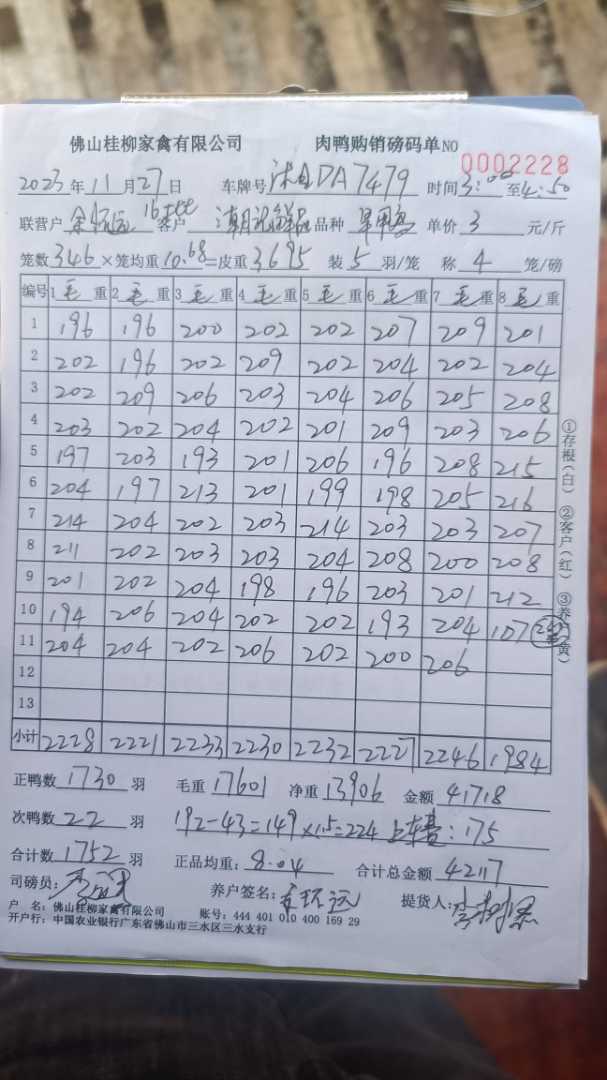 佛山桂柳家禽有限公司 肉鸭购销磅码单 NO 0002228
2023年11月27日 车牌号 DA7479 时间3:00至4:50
联营户 余怀远 16批 客户 潮记 品种 单价 3 元/斤
笼数346×笼均重10.68=皮重3695 装5羽/笼 称4笼/磅
编号 1毛重 2毛重 3毛重 4毛重 5毛重 6毛重 7毛重 8毛重
1 196 196 200 202 202 207 209 201
2 202 196 202 209 202 204 202 204
3 202 209 206 203 204 206 205 208
4 203 202 204 202 201 209 203 206
5 197 203 193 201 206 196 208 215
6 204 197 213 201 199 198 205 216
7 214 204 202 203 214 203 203 207
8 211 202 203 203 204 208 200 208
9 201 202 204 198 196 203 201 212
10 194 206 204 202 202 193 204 107
11 204 204 202 206 202 200 206
12
13
小计 2228 2221 2233 2230 2232 2227 2246 1984
正鸭数1730羽 毛重17601 净重13906 金额41718
次鸭数22羽 192-43=149×1.5=224 上车费:175
合计数1752羽 正品均重:8.04 合计总金额42117
司磅员: 养户签名: 提货人:
户 名:佛山桂柳家禽有限公司 账号:444 401 010 400 169 29
开户行:中国农业银行广东省佛山市三水区三水支行
①存根(白) ②客户(红) ③养户(黄)